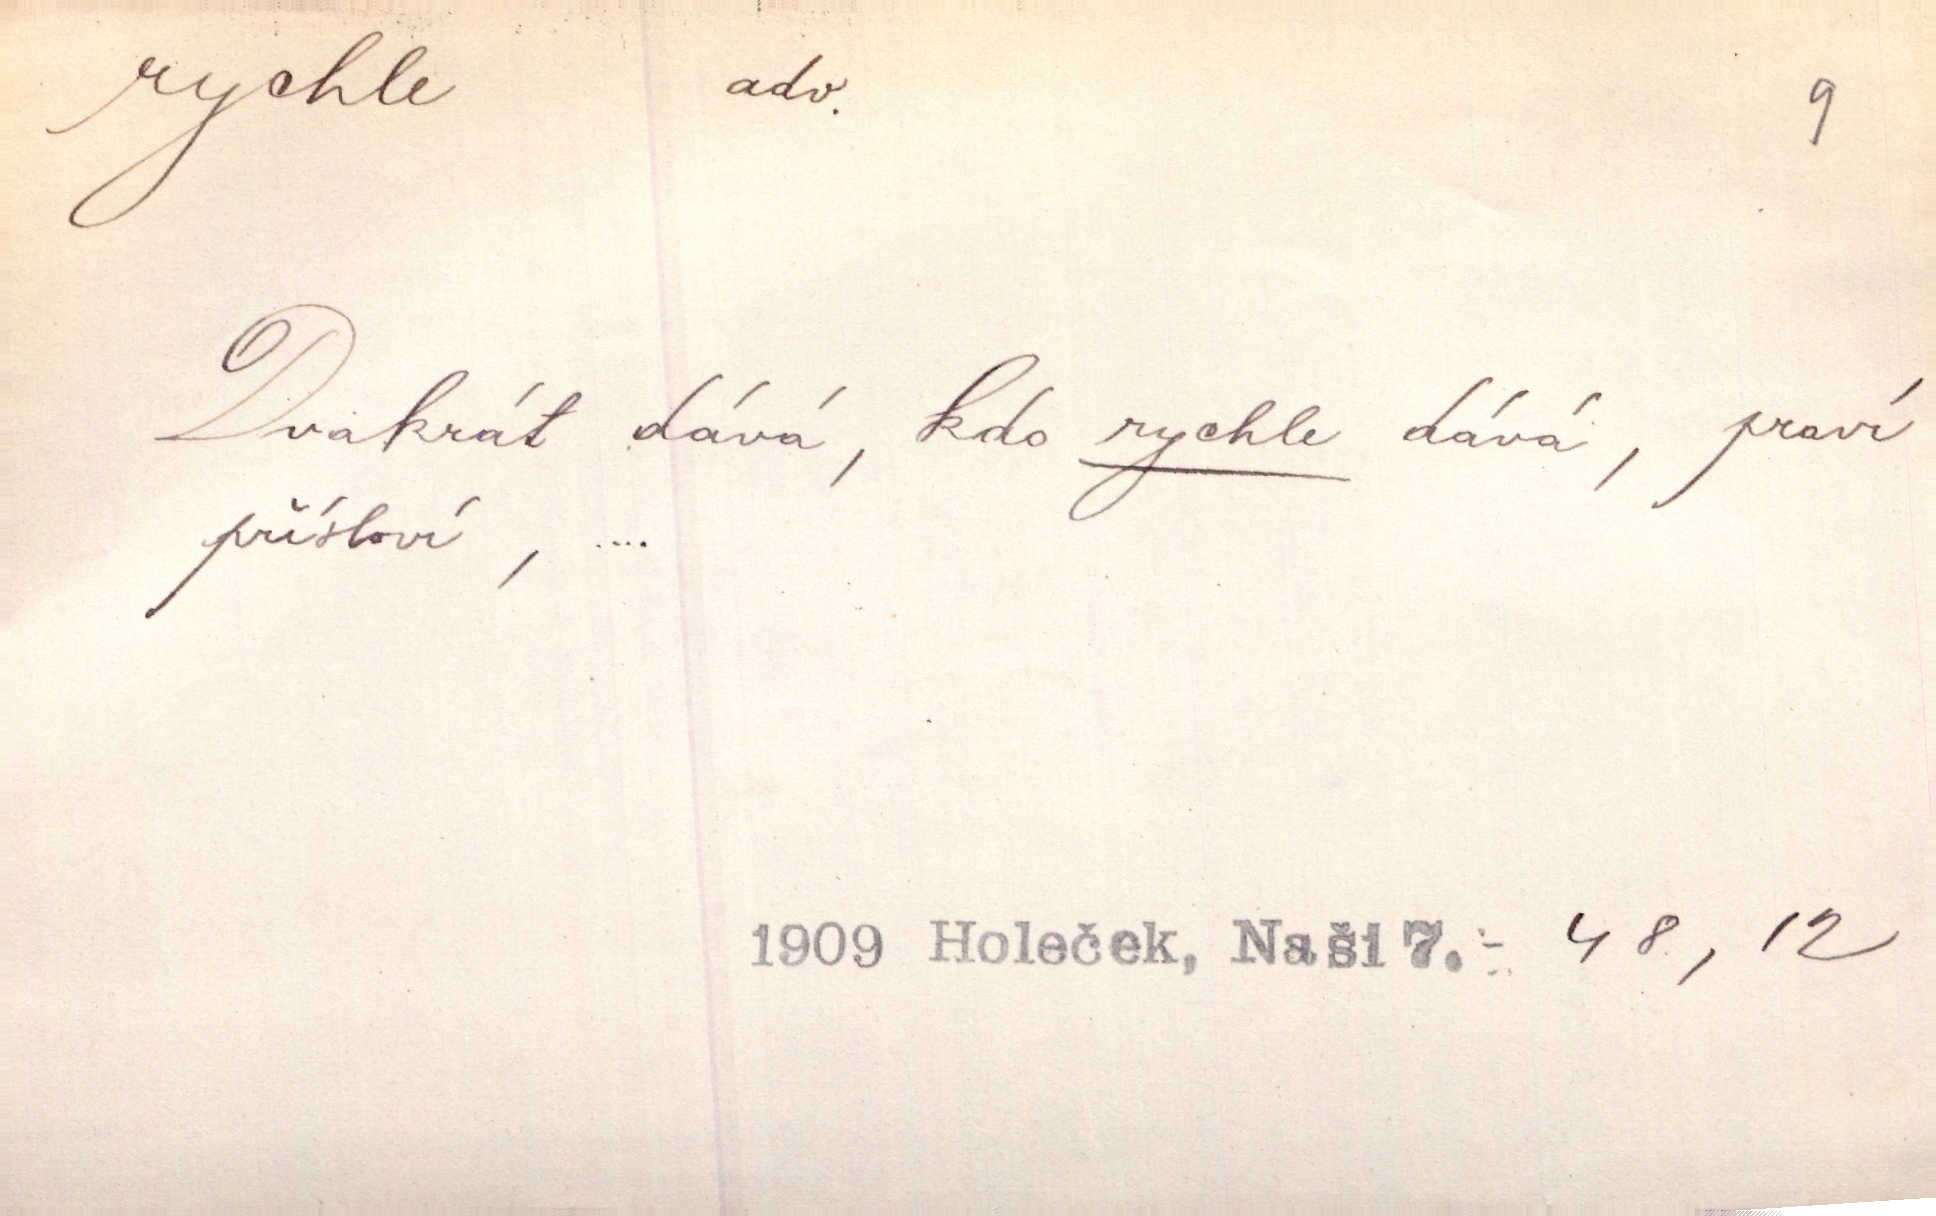 rychle adv. 9
Dvakrát dává, kdo rychle dává, praví
přísloví, ....
1909 Holeček, Naši 7.- 48, 12